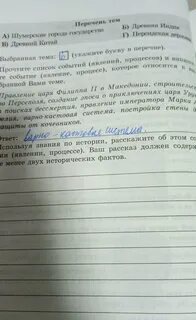 Перечень тем
А) Шумерские города-государства
Б) Древняя Индия
В) Древний Китай
Г) Персидская держава
Выбранная тема: Б (укажите букву в перечне).
Прочтите список событий (явлений, процессов) и
те событие (явление, процесс), которое относится к
бранной Вами теме.
Правление царя Филиппа II в Македонии, строительство
Персеполя, создание эпоса о приключениях царя
поисках бессмертия, правление императора Марка
варно-кастовая система, постройка стены
защиты от кочевников.
Ответ: варно-кастовая система.
Используя знания по истории, расскажите об этом
(явлении, процессе). Ваш рассказ должен содержа
не менее двух исторических фактов.